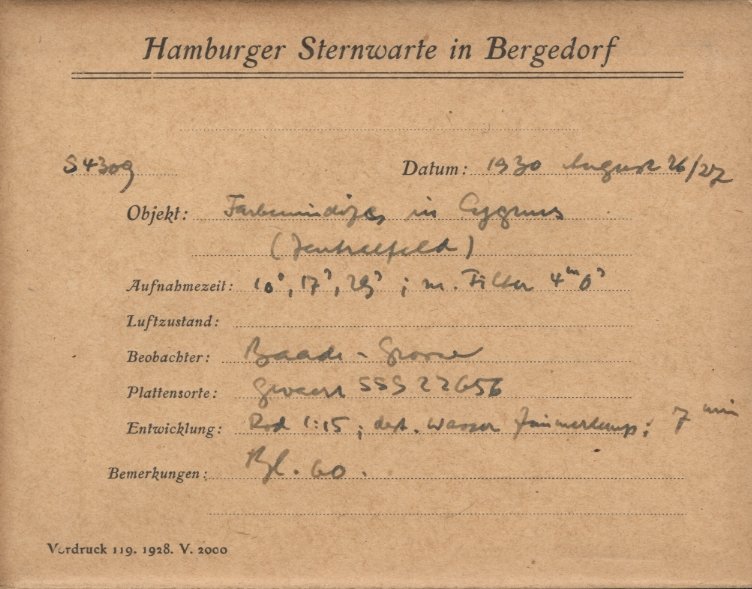 Hamburger Sternwarte in Bergedorf
S 4309 Datum: 1930 August 26/27
Objekt: Farbenindizes in Cygnus
(Zentralfeld)
Aufnahmezeit: 10ˢ, 17ˢ, 29ˢ; m. Filter 4ᵐ 0ˢ
Luftzustand:
Beobachter: Baade -
Plattensorte: Gevaert SSS 22656
Entwicklung: Rod 1:15; dest. Wasser 7 min
Bemerkungen: Bl. 60.
Vordruck 119. 1928. V. 2000